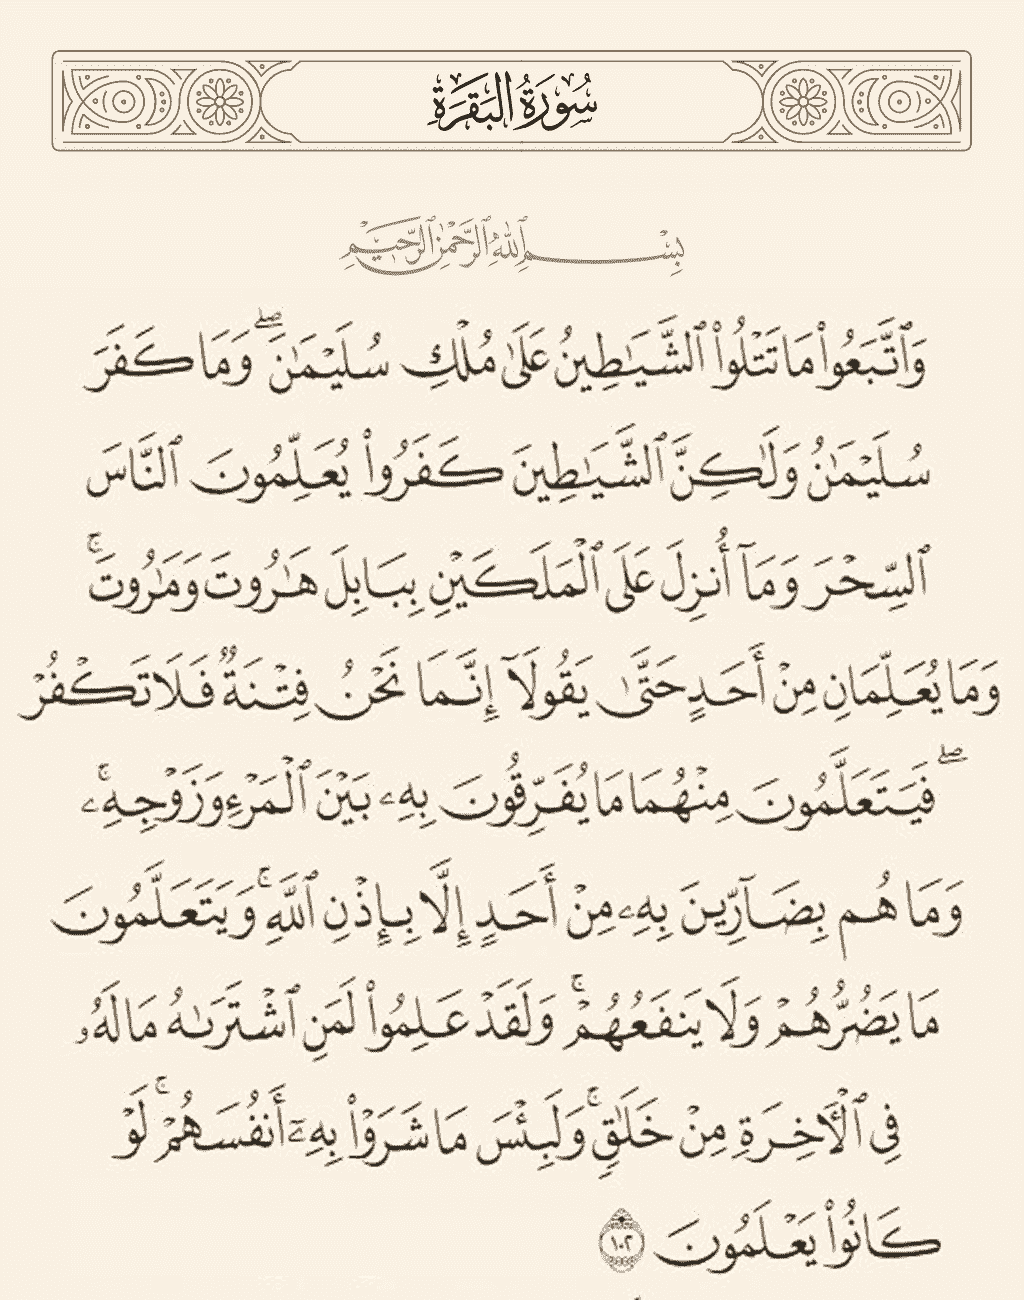 سُورَةُ البَقَرَةِ
بِسْمِ ٱللَّهِ ٱلرَّحْمَٰنِ ٱلرَّحِيمِ
وَٱتَّبَعُوا۟ مَا تَتْلُوا۟ ٱلشَّيَٰطِينُ عَلَىٰ مُلْكِ سُلَيْمَٰنَ ۖ وَمَا كَفَرَ
سُلَيْمَٰنُ وَلَٰكِنَّ ٱلشَّيَٰطِينَ كَفَرُوا۟ يُعَلِّمُونَ ٱلنَّاسَ
ٱلسِّحْرَ وَمَآ أُنزِلَ عَلَى ٱلْمَلَكَيْنِ بِبَابِلَ هَٰرُوتَ وَمَٰرُوتَ ۚ
وَمَا يُعَلِّمَانِ مِنْ أَحَدٍ حَتَّىٰ يَقُولَآ إِنَّمَا نَحْنُ فِتْنَةٌ فَلَا تَكْفُرْ
ۖ فَيَتَعَلَّمُونَ مِنْهُمَا مَا يُفَرِّقُونَ بِهِۦ بَيْنَ ٱلْمَرْءِ وَزَوْجِهِۦ ۚ
وَمَا هُم بِضَآرِّينَ بِهِۦ مِنْ أَحَدٍ إِلَّا بِإِذْنِ ٱللَّهِ ۚ وَيَتَعَلَّمُونَ
مَا يَضُرُّهُمْ وَلَا يَنفَعُهُمْ ۚ وَلَقَدْ عَلِمُوا۟ لَمَنِ ٱشْتَرَىٰهُ مَا لَهُۥ
فِى ٱلْءَاخِرَةِ مِنْ خَلَٰقٍ ۚ وَلَبِئْسَ مَا شَرَوْا۟ بِهِۦٓ أَنفُسَهُمْ ۚ لَوْ
كَانُوا۟ يَعْلَمُونَ ١٠٢